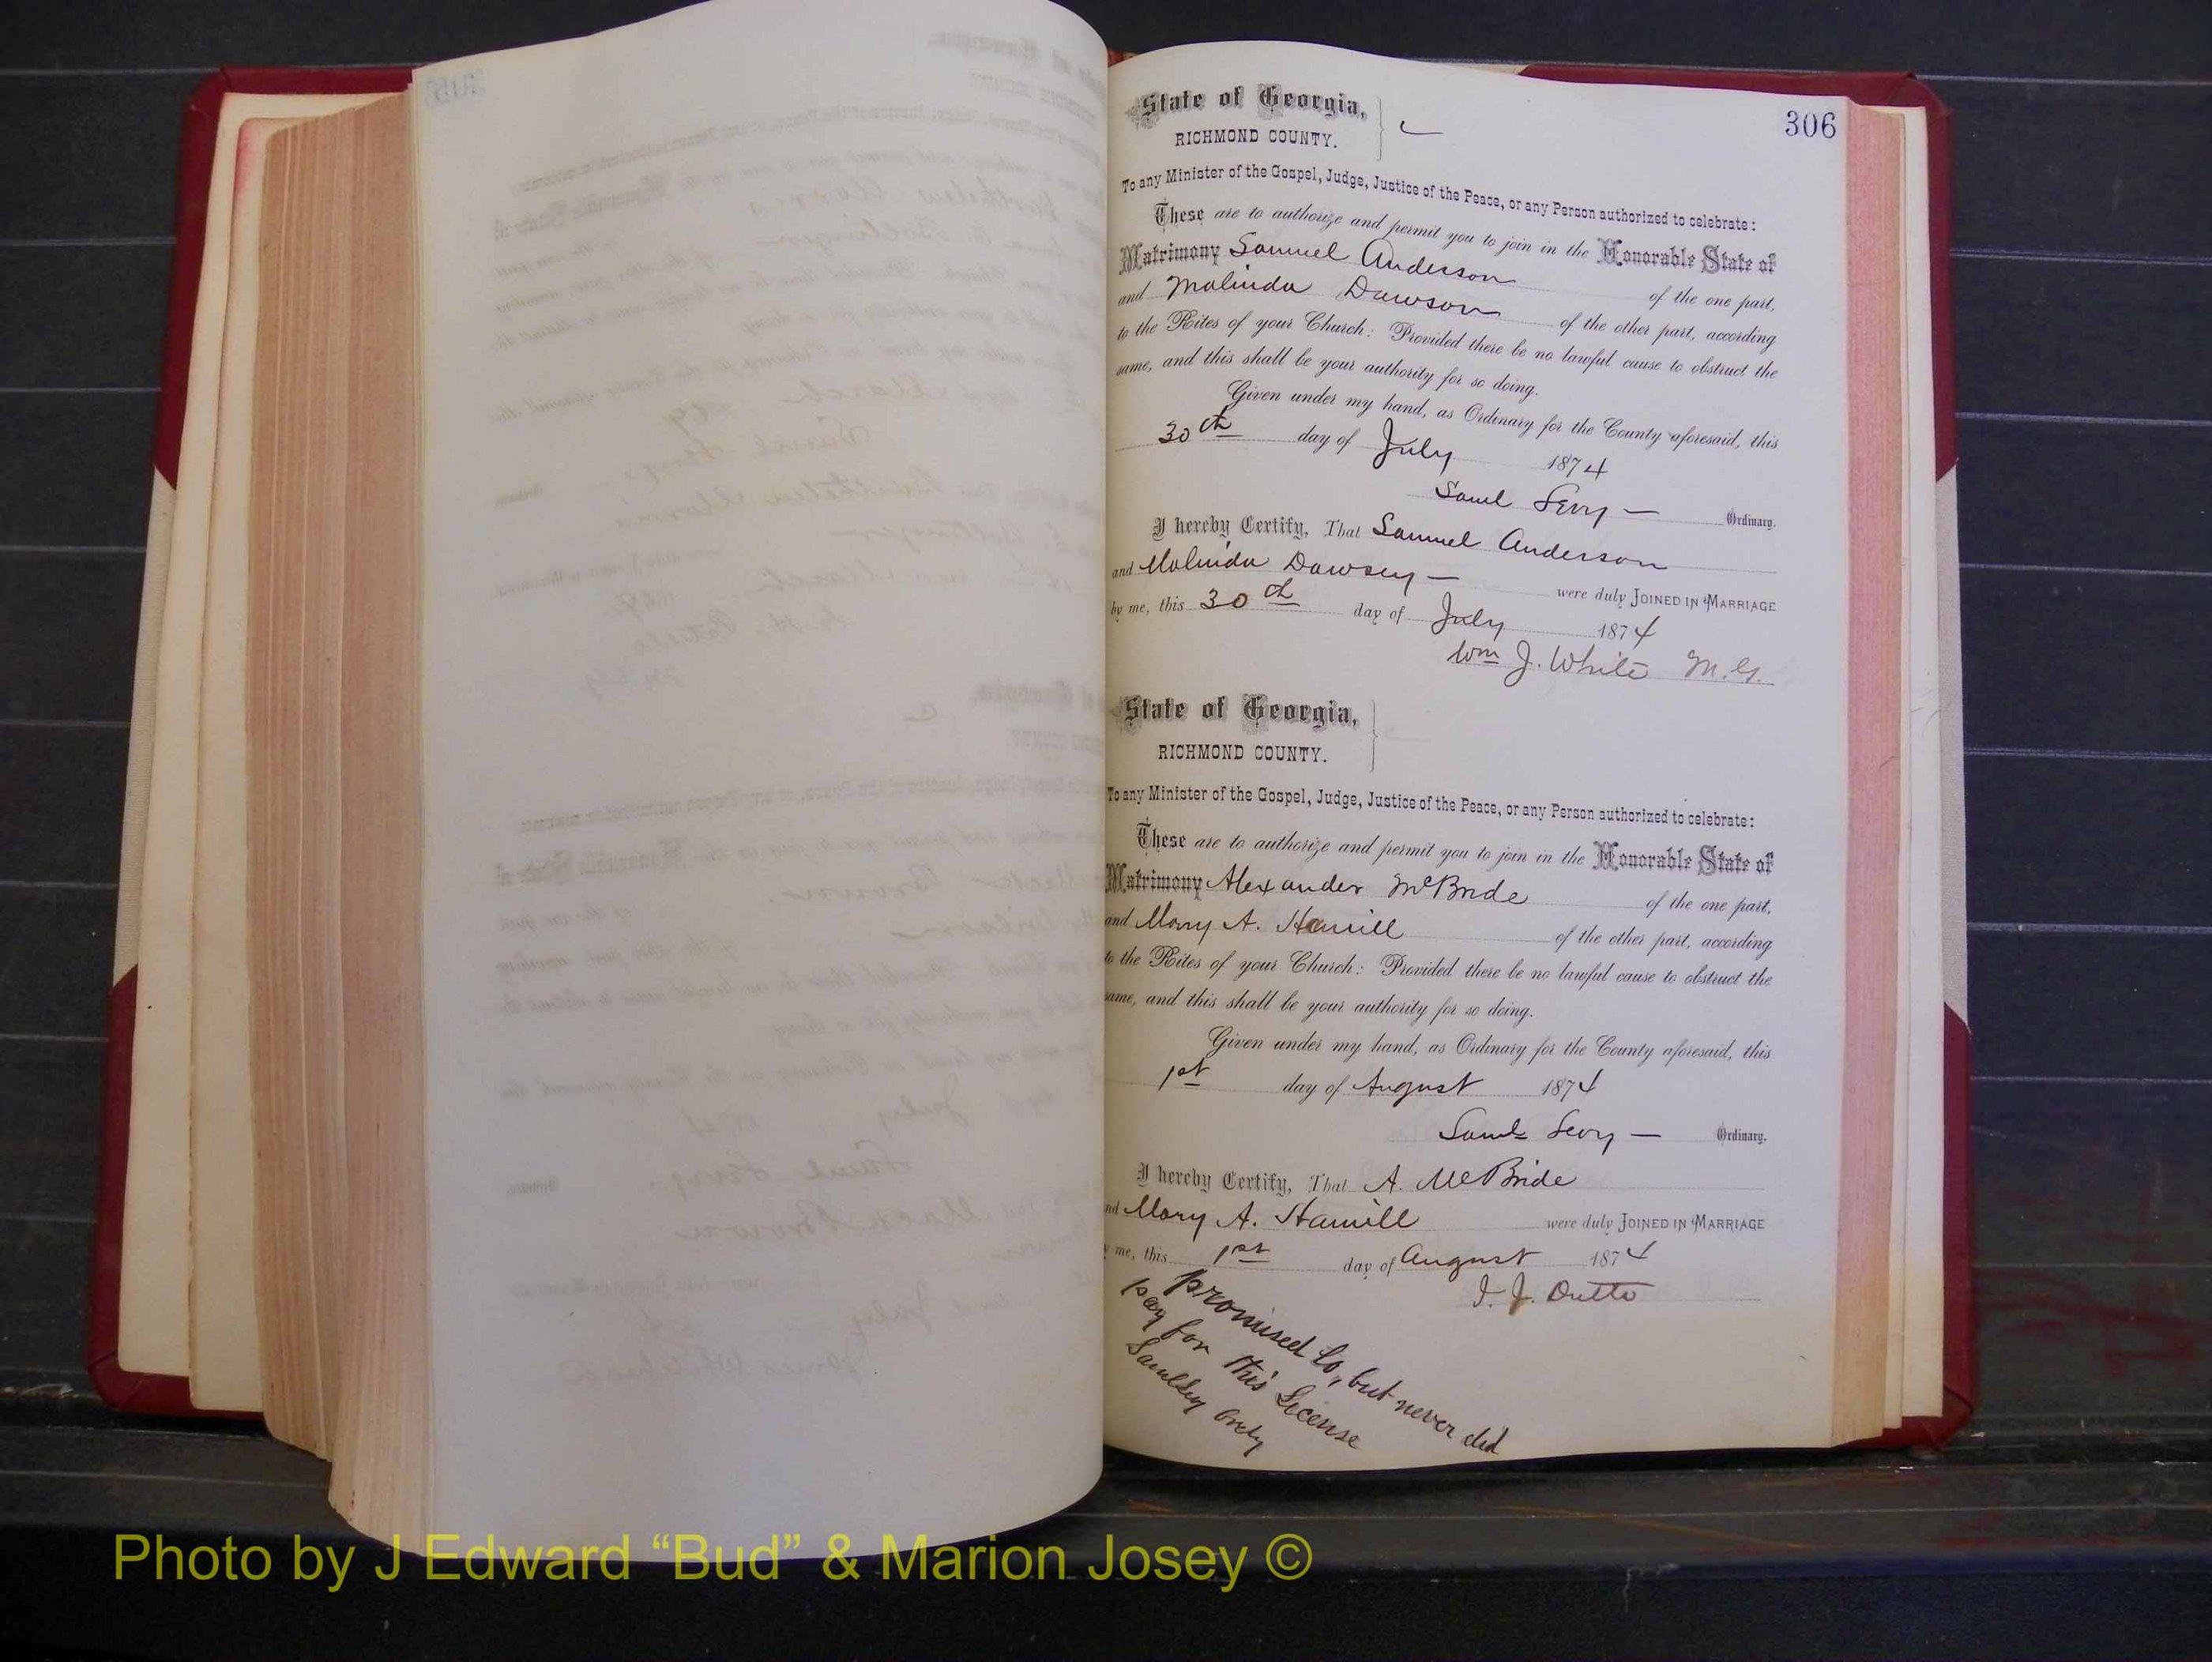 306
State of Georgia,
RICHMOND COUNTY.
To any Minister of the Gospel, Judge, Justice of the Peace, or any Person authorized to celebrate:
These are to authorize and permit you to join in the Honorable State of
Matrimony Samuel Anderson of the one part,
and Malinda Dawson of the other part, according
to the Rites of your Church: Provided there be no lawful cause to obstruct the
same, and this shall be your authority for so doing.
Given under my hand, as Ordinary for the County aforesaid, this
30th day of July 1874
Saml Levy — Ordinary.
I hereby Certify, That Samuel Anderson
and Malinda Dawsey — were duly JOINED IN MARRIAGE
by me, this 30th day of July 1874
Wm J. White M.G.
State of Georgia,
RICHMOND COUNTY.
To any Minister of the Gospel, Judge, Justice of the Peace, or any Person authorized to celebrate:
These are to authorize and permit you to join in the Honorable State of
Matrimony Alexander McBride of the one part,
and Mary A. Hamill of the other part, according
to the Rites of your Church: Provided there be no lawful cause to obstruct the
same, and this shall be your authority for so doing.
Given under my hand, as Ordinary for the County aforesaid, this
1st day of August 1874
Saml Levy — Ordinary.
I hereby Certify, That A. McBride
and Mary A. Hamill were duly JOINED IN MARRIAGE
by me, this 1st day of August 1874
promised to, but never did
pay for this License
Photo by J Edward “Bud” & Marion Josey ©